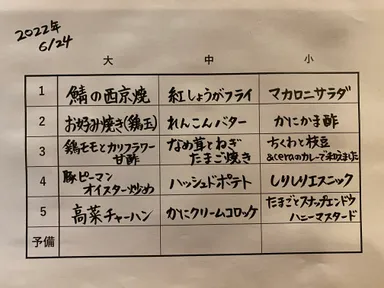 2022年
6/24
大 中 小
1 鯖の西京焼 紅しょうがフライ マカロニサラダ
2 お好み焼き(鶏玉) れんこんバター かにかま酢
3 鶏モモとカリフラワー甘酢 なめ茸とねぎたまご焼き ちくわと枝豆&ceraのカレーで和えました
4 豚ピーマンオイスター炒め ハッシュドポテト しりしりエスニック
5 高菜チャーハン かにクリームコロッケ たまごとスナップエンドウハニーマスタード
予備